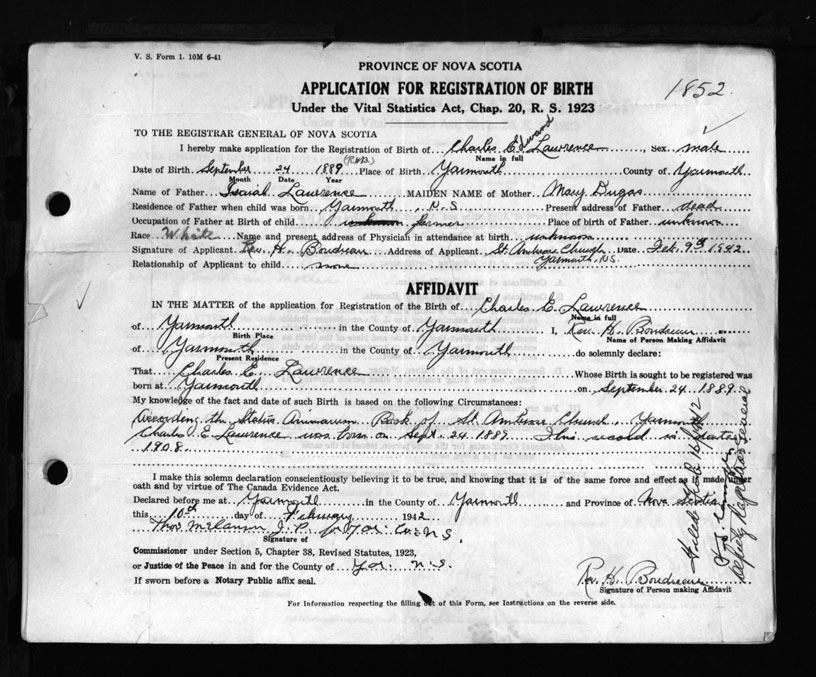 V. S. Form 1. 10M 6-41
PROVINCE OF NOVA SCOTIA
APPLICATION FOR REGISTRATION OF BIRTH
1852
Under the Vital Statistics Act, Chap. 20, R. S. 1923
TO THE REGISTRAR GENERAL OF NOVA SCOTIA
I hereby make application for the Registration of Birth of Charles Edward Lawrence, sex male
Name in full
Date of Birth September 24 1889 Place of Birth Yarmouth County of Yarmouth
Month Date Year
Name of Father Isaiah Lawrence MAIDEN NAME of Mother Mary Dugas
Residence of Father when child was born Yarmouth, N.S Present address of Father dead
Occupation of Father at Birth of child unknown farmer Place of birth of Father unknown
Race White Name and present address of Physician in attendance at birth unknown
Signature of Applicant Rev. H. Boudreau Address of Applicant St. Ambrose Church Date Feb. 9th 1942
Yarmouth, N.S.
Relationship of Applicant to child none
AFFIDAVIT
IN THE MATTER of the application for Registration of the Birth of Charles E. Lawrence
Name in full
of Yarmouth in the County of Yarmouth I, Rev. H. Boudreau
Birth Place Name of Person Making Affidavit
of Yarmouth in the County of Yarmouth do solemnly declare:
Present Residence
That Charles E. Lawrence Whose Birth is sought to be registered was
born at Yarmouth on September 24 1889
My knowledge of the fact and date of such Birth is based on the following Circumstances:
According the Status Animarum Book of St. Ambrose Church, Yarmouth
Charles E Lawrence was born on Sept. 24 1889. This record is dated
1908.
I make this solemn declaration conscientiously believing it to be true, and knowing that it is of the same force and effect as if made under
oath and by virtue of The Canada Evidence Act.
Declared before me at Yarmouth in the County of Yarmouth and Province of Nova Scotia
this 10th day of February 1942
Thos. J. P. for Yar. Co. N.S.
Signature of
Commissioner under Section 5, Chapter 38, Revised Statutes, 1923,
or Justice of the Peace in and for the County of Yar. N.S.
If sworn before a Notary Public affix seal.
Rev. H. Boudreau
Signature of Person making Affidavit
For Information respecting the filling out of this Form, see Instructions on the reverse side.
Filed Feb 16/1942
Deputy Registrar General